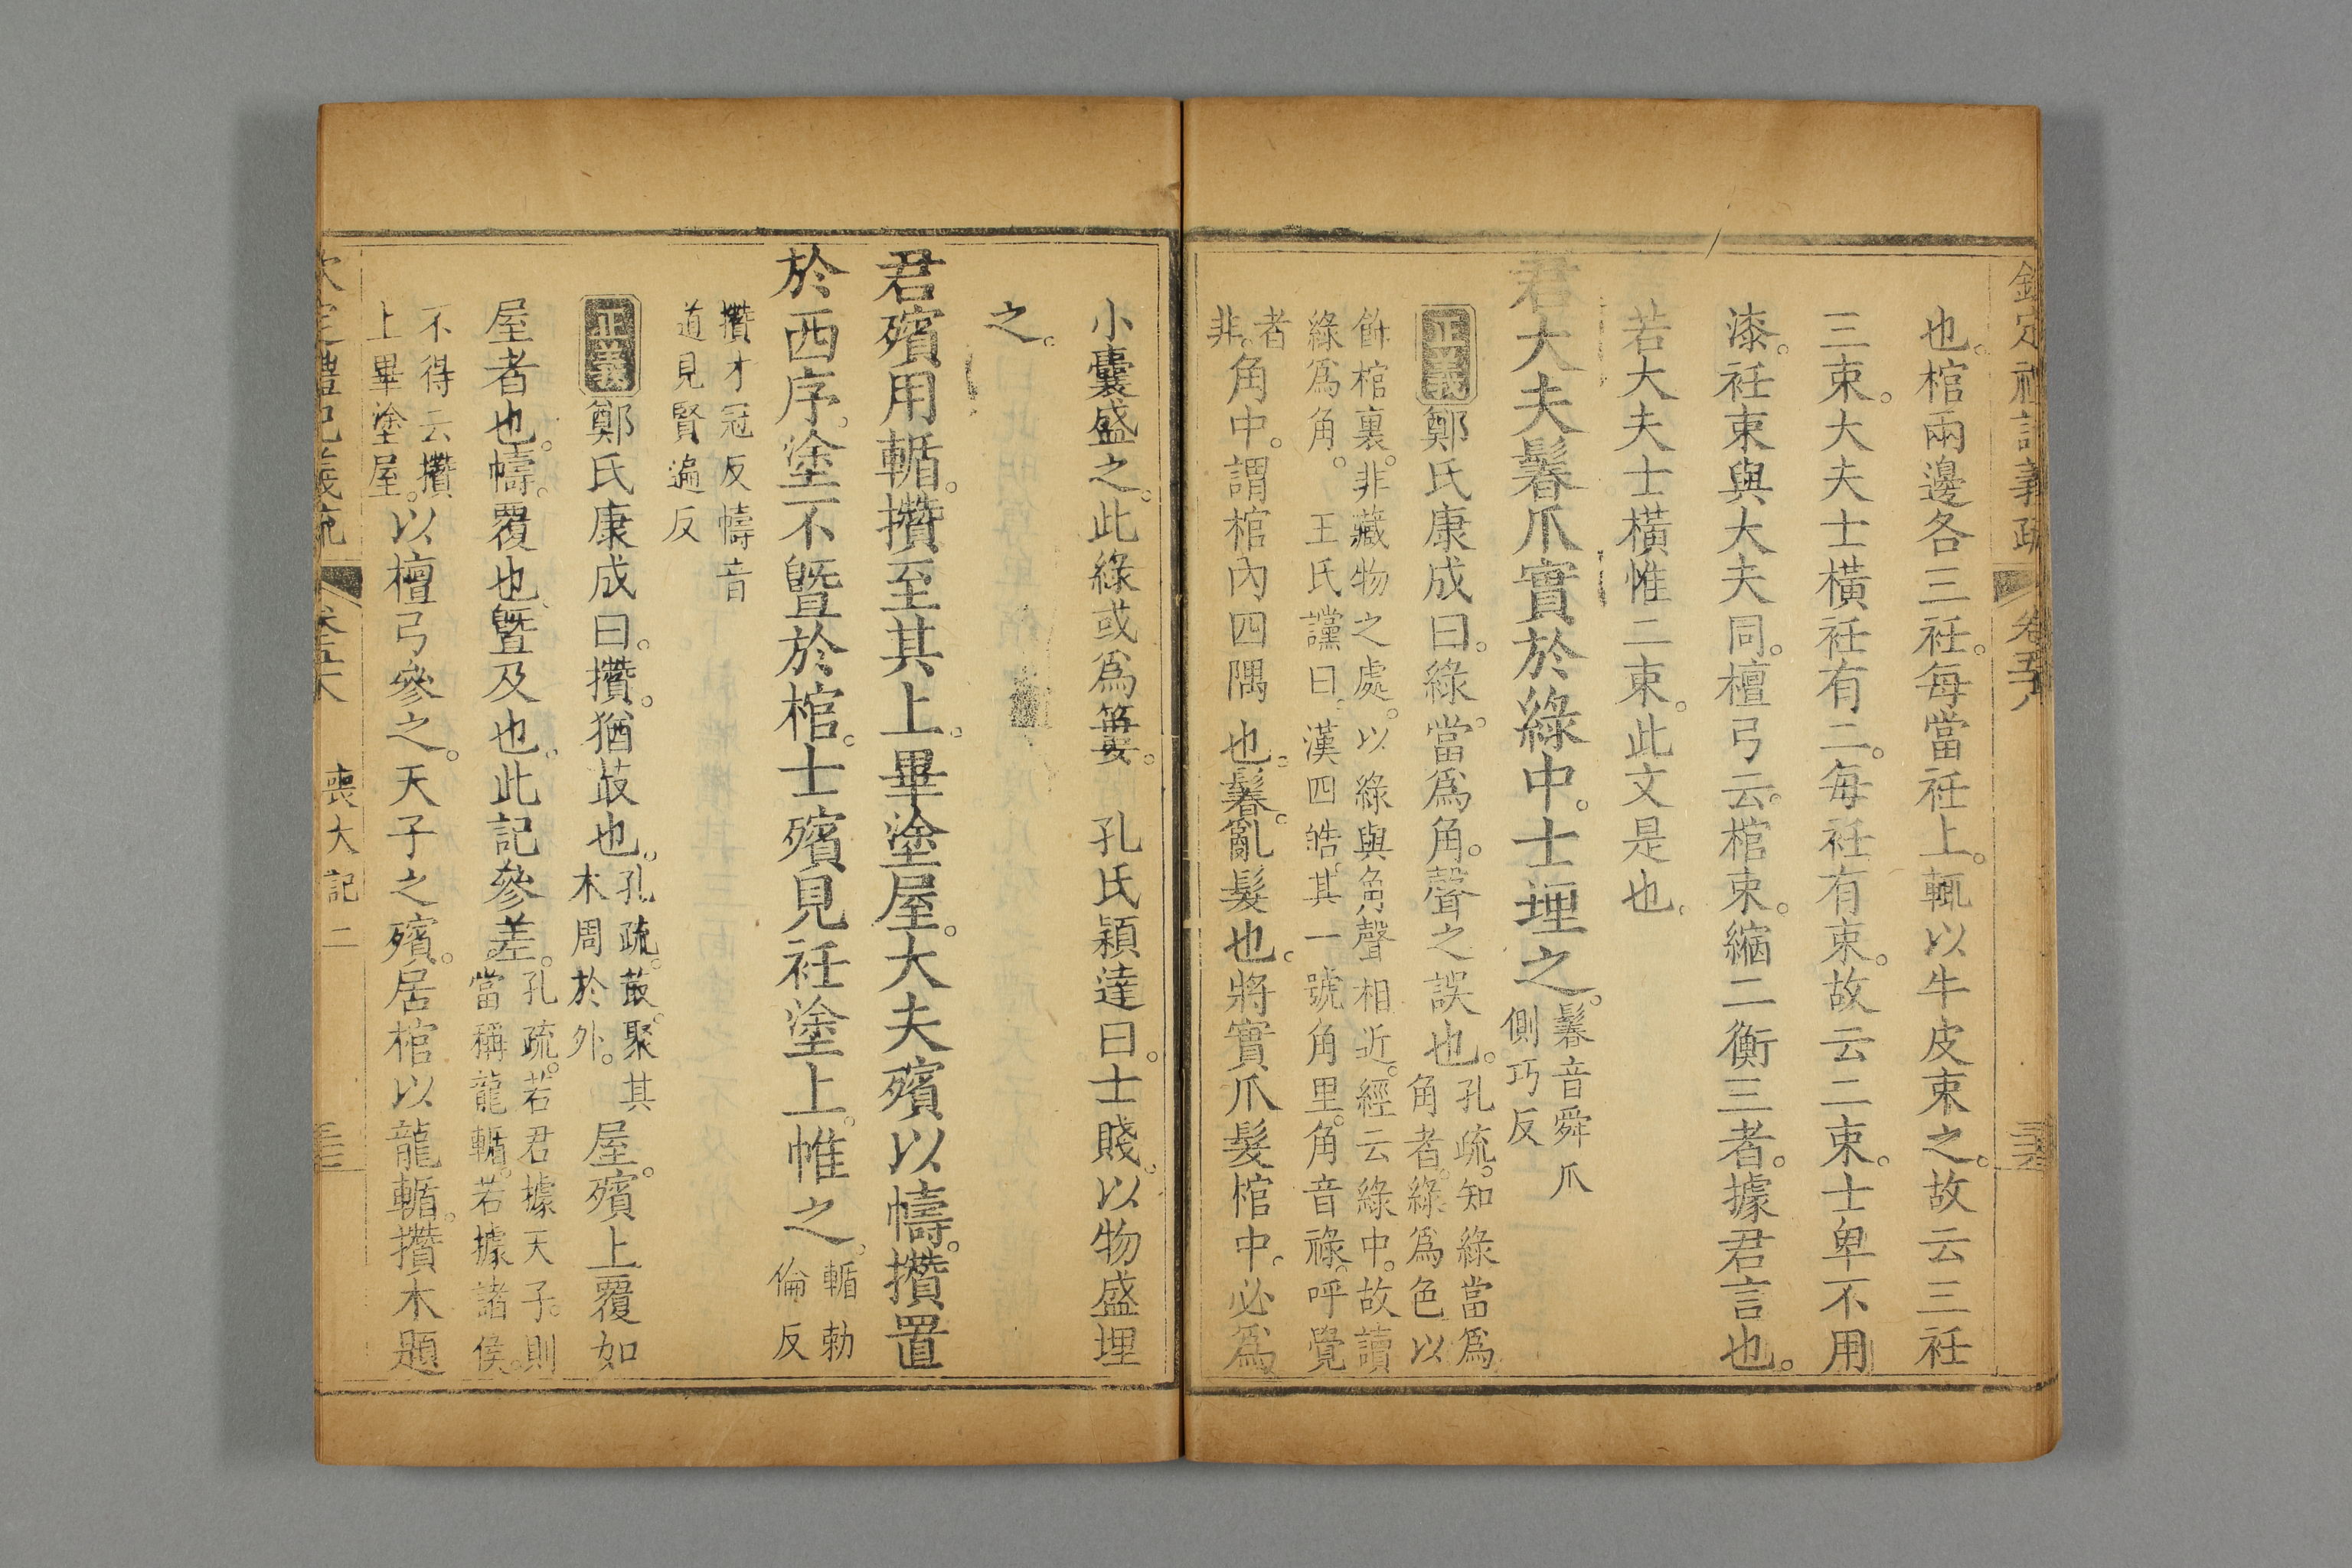 欽定禮記義疏 卷五十八
也。棺兩邊各三衽。每當衽上。輒以牛皮束之。故云三衽
三束。大夫士橫衽有二。每衽有束。故云二束。士卑不用
漆。衽束與大夫同。檀弓云。棺束。縮二衡三者。據君言也。
若大夫士橫惟二束。此文是也。
君大夫鬊爪實於綠中。士埋之。鬊音舜爪
側巧反
正義鄭氏康成曰。綠。當為角。聲之誤也。孔疏。知綠當為
角者。綠為色。以
飾棺裏。非藏物之處。以綠與角聲相近。經云綠中。故讀
綠為角。 王氏讜曰。漢四皓。其一號角里。角音祿。呼覺
者
非。角中。謂棺內四隅也。鬊。亂髮也。將實爪髮棺中。必為
小囊盛之。此綠或為簍。 孔氏穎達曰。士賤。以物盛埋
之。
君殯用輴。欑至其上。畢塗屋。大夫殯以幬。欑置
於西序。塗不曁於棺。士殯見衽塗上。帷之。輴勅
倫反
欑才冠反幬音
道見賢遍反
正義鄭氏康成曰。欑。猶菆也。孔疏。菆。聚其
木周於外。屋。殯上覆如
屋者也。幬。覆也。曁。及也。此記參差。孔疏。若君據天子。則
當稱龍輴。若據諸侯。
不得云欑
上畢塗屋。以檀弓參之。天子之殯。居棺以龍輴。欑木題
欽定禮記義疏 喪大記二